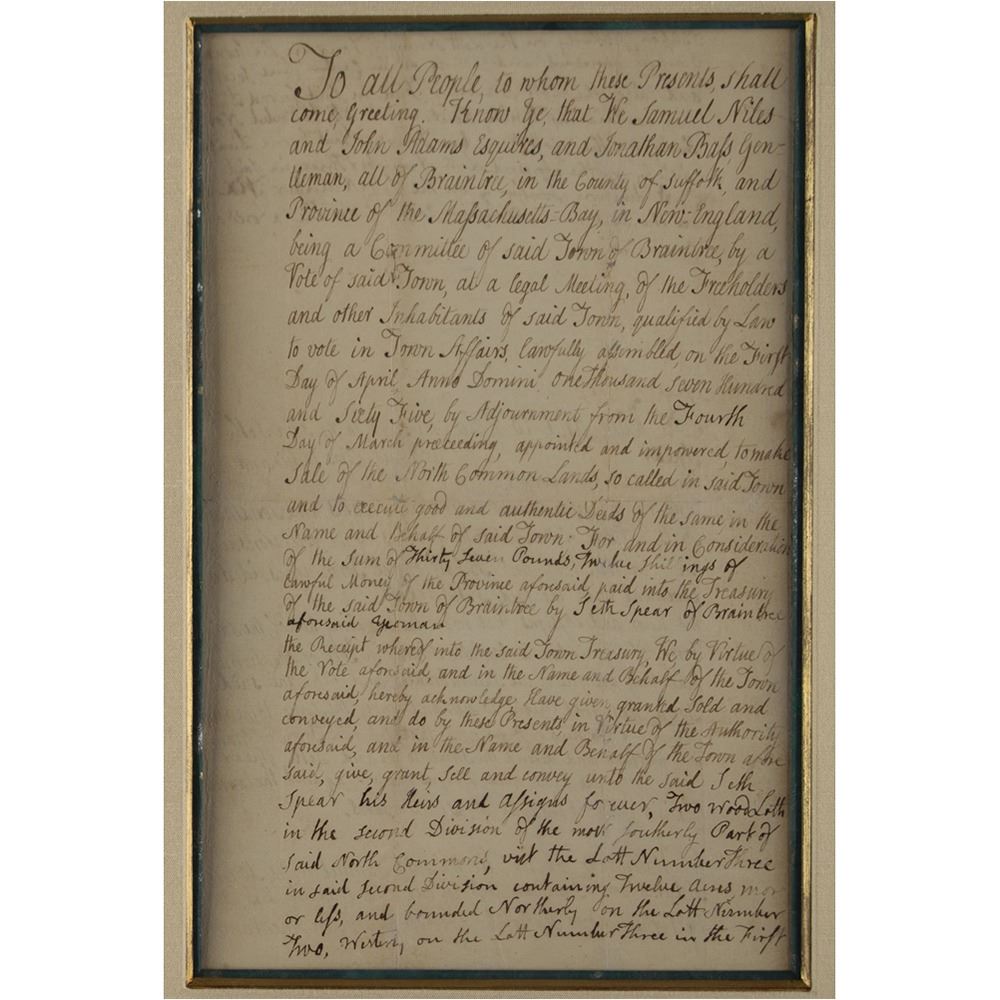 To all People, to whom these Presents, shall
come, Greeting. Know Ye, that We Samuel Niles
and John Adams Esquires, and Jonathan Bass Gen-
tleman, all of Braintree, in the County of Suffolk, and
Province of the Massachusetts-Bay, in New-England,
being a Committee of said Town of Braintree, by a
Vote of said Town, at a legal Meeting, of the Freeholders
and other Inhabitants of said Town, qualified by Law
to vote in Town Affairs, lawfully assembled, on the First
Day of April, Anno Domini one Thousand Seven Hundred
and Sixty Five, by Adjournment from the Fourth
Day of March preceeding, appointed and impowered, to make
Sale of the North Common Lands, so called in said Town
and to execute good and authentic Deeds of the same in the
Name and Behalf of said Town. For, and in Consideration
of the Sum of Thirty Seven Pounds, Twelve Shillings of
lawful Money of the Province aforesaid, paid into the Treasury
of the said Town of Braintree by Seth Spear of Braintree
aforesaid Yeoman
the Receipt whereof into the said Town Treasury, We, by Virtue of
the Vote aforesaid, and in the Name and Behalf of the Town
aforesaid, hereby acknowledge, Have given, granted Sold and
conveyed, and do by these Presents, in Virtue of the Authority
aforesaid, and in the Name and Behalf of the Town afore
said, give, grant, sell and convey unto the said Seth
Spear his Heirs and Assigns forever, Two Wood Lotts
in the second Division of the most southerly Part of
said North Commons, vizt the Lott Number Three
in said second Division containing Twelve Acres more
or less, and bounded Northerly on the Lott Number
Two, Westerly on the Lott Number Three in the First